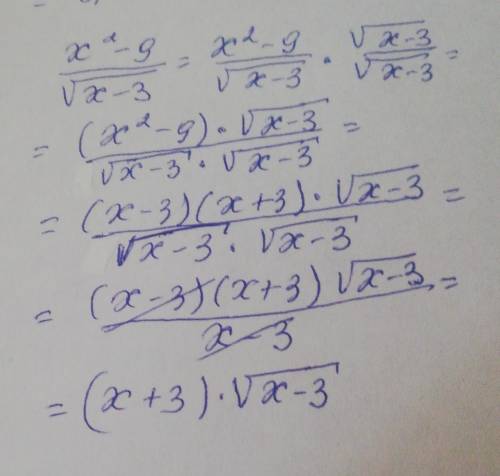 x²-9/√(x-3) = x²-9/√(x-3) · √(x-3)/√(x-3) =
= (x²-9)·√(x-3)/√(x-3)·√(x-3) =
= (x-3)(x+3)·√(x-3)/√(x-3)·√(x-3) =
= (x-3)(x+3)√(x-3)/x-3 =
= (x+3)·√(x-3)